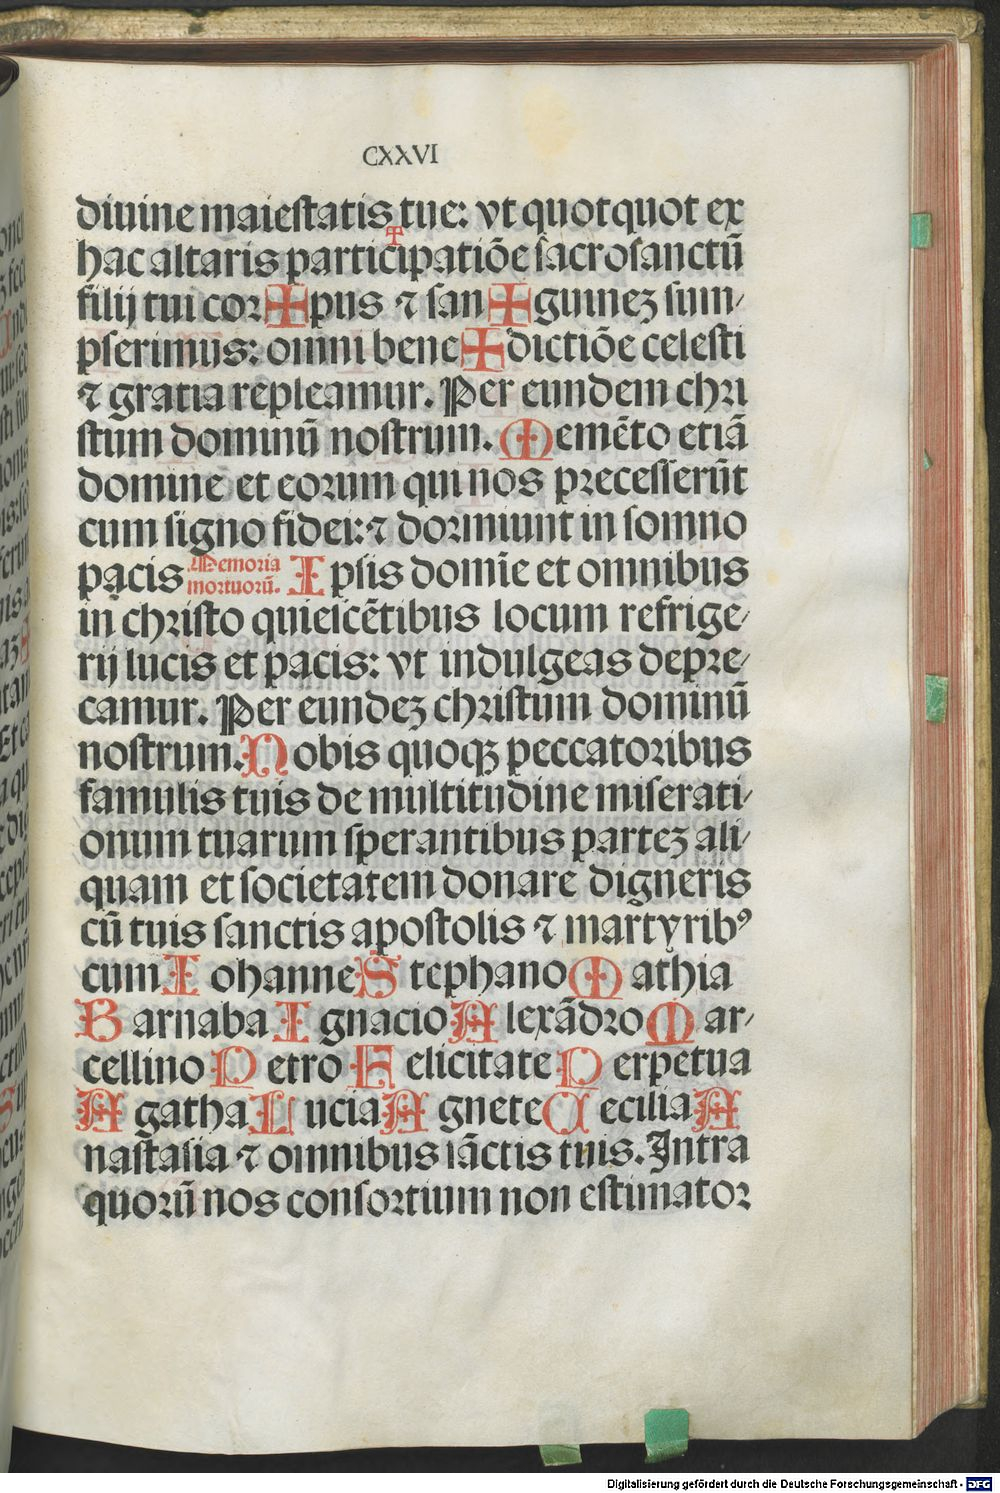 CXXVI
diuine maiestatis tue: vt quotquot ex
hac altaris participatiõe sacrosanctũ
filij tui cor✠pus ⁊ san✠guineꝫ sum⸗
pserimus: omni bene✠dictiõe celesti
⁊ gratia repleamur. Per eundem chri
stum dominũ nostrum. Memẽto etiã
domine et eorum qui nos precesserũt
cum signo fidei: ⁊ dormiunt in somno
pacis Memoria mortuorũ. Ipsis domĩe et omnibus
in christo quiescẽtibus locum refrige⸗
rij lucis et pacis: vt indulgeas depre⸗
camur. Per eundeꝫ christum dominũ
nostrum. Nobis quoqꝫ peccatoribus
famulis tuis de multitudine miserati⸗
onum tuarum sperantibus parteꝫ ali⸗
quam et societatem donare digneris
cũ tuis sanctis apostolis ⁊ martyribꝰ
cum Iohanne Stephano Mathia
Barnaba Ignacio Alexãdro Mar⸗
cellino Petro Felicitate Perpetua
Agatha Lucia Agnete Cecilia A
nastasia ⁊ omnibus sãctis tuis. Intra
quorũ nos consortium non estimator
Digitalisierung gefördert durch die Deutsche Forschungsgemeinschaft - DFG